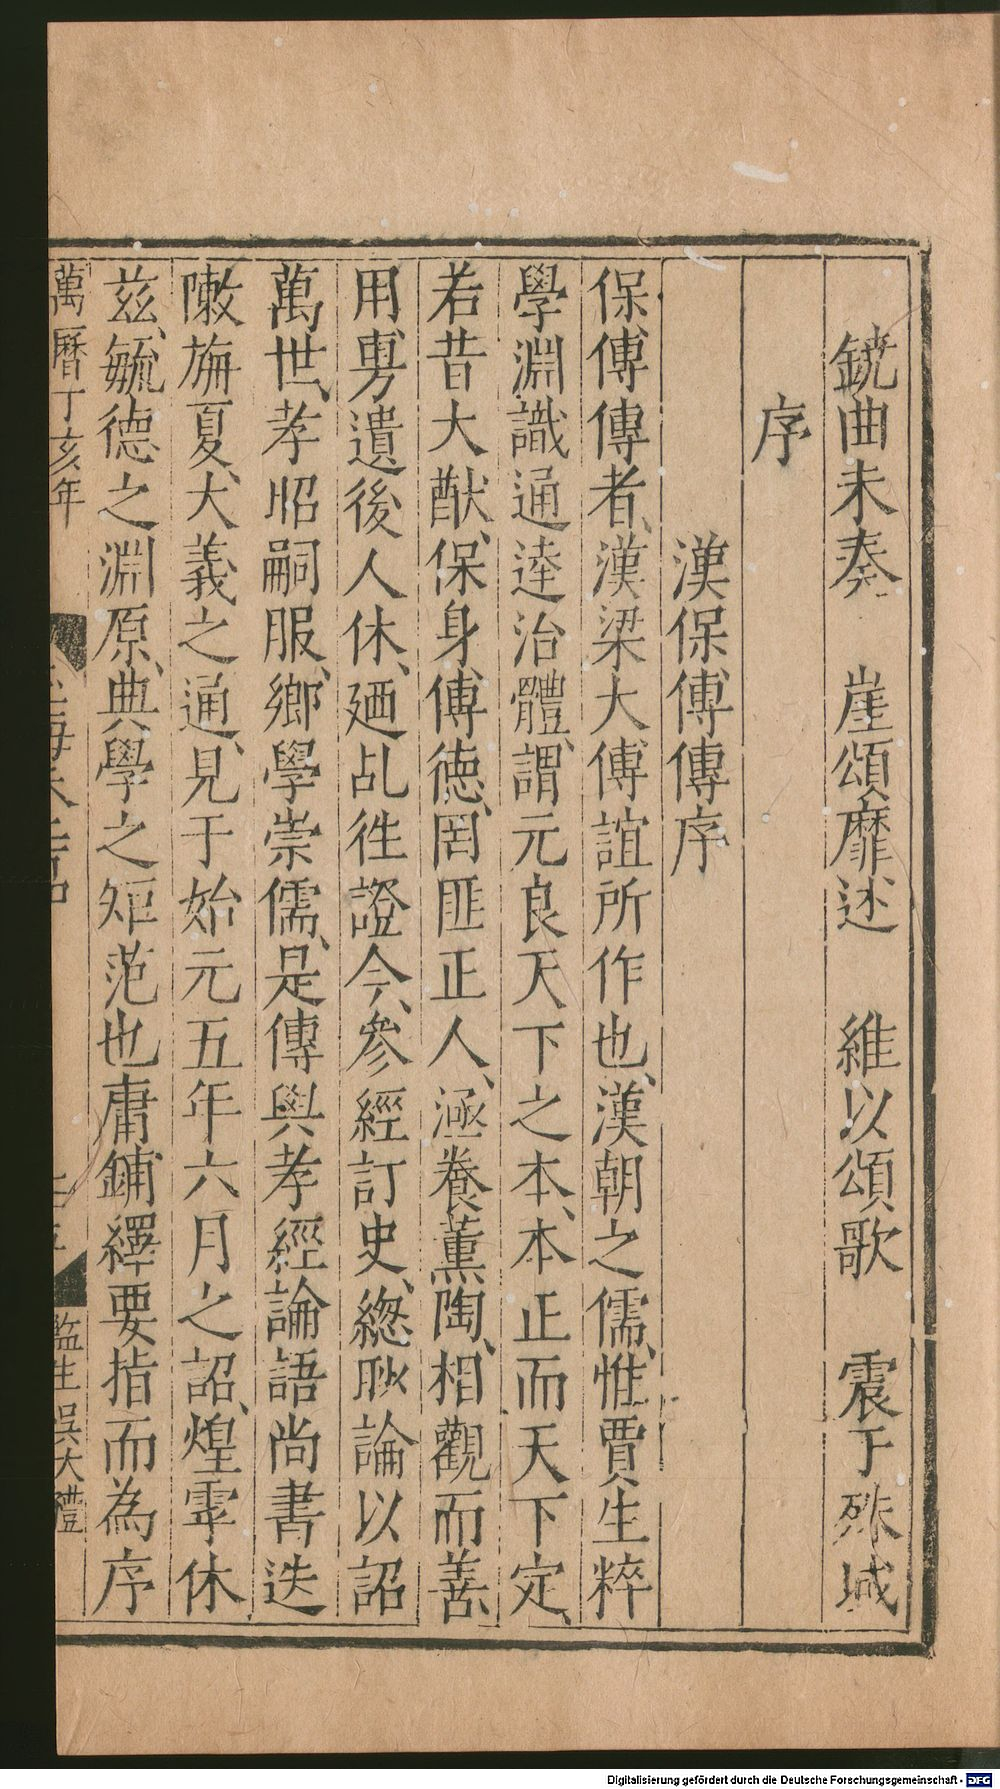 鐃曲未奏　崖頌靡述　維以頌歌　震于殊域
序
漢保傅傳序
保傅傳者、漢梁大傅誼所作也、漢朝之儒、惟賈生粹
學淵識通逹治體、謂元良天下之本、本正而天下定、
若昔大猷、保身傅德、罔匪正人、涵養薰陶、相觀而善、
用旉遺後人休、廼乩徃證今、參經訂史、緫耴論以詔
萬世、孝昭嗣服、鄉學崇儒、是傳與孝經論語尚書迭
敶旃夏、大義之通、見于始元五年六月之詔、煌雩休
茲、毓德之淵原、典學之矩范也庸鋪繹要指而為序
萬曆丁亥年
監生吳大禮
Digitalisierung gefördert durch die Deutsche Forschungsgemeinschaft - DFG